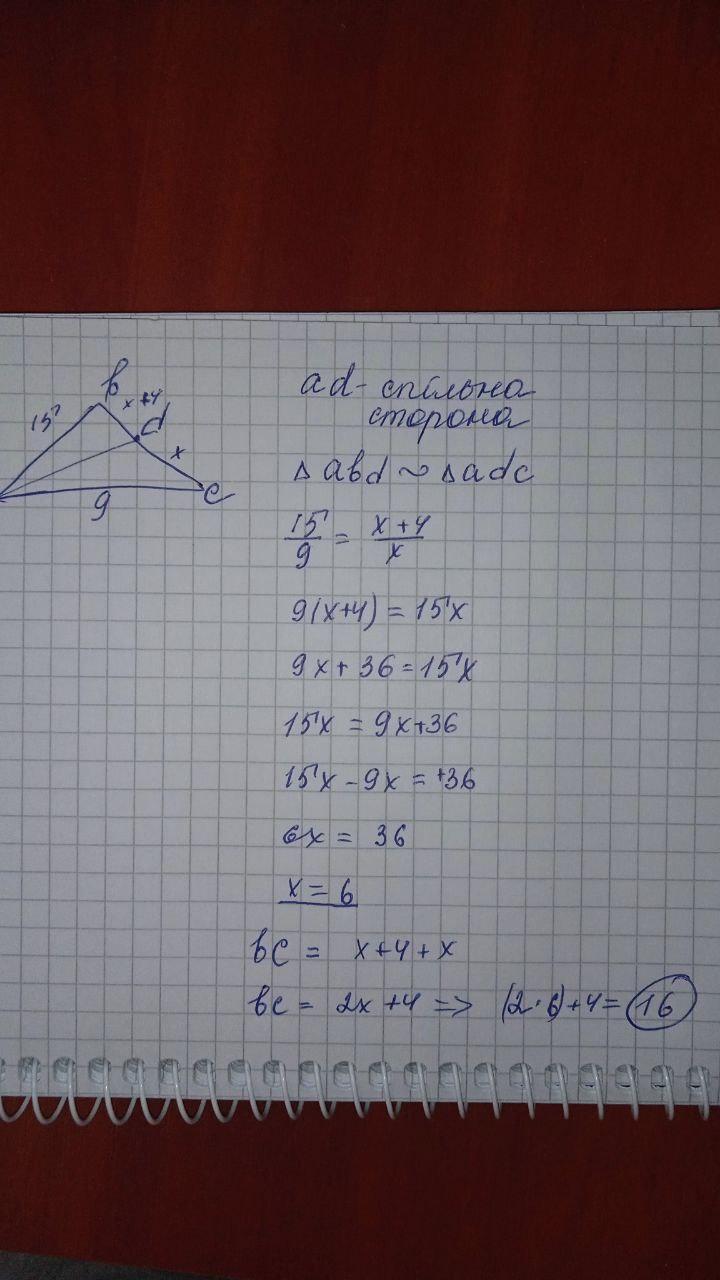 b
15
x+4
d
x
c
9
ad - спільна
сторона
△ abd ~ △ adc
15/9 = x+4/x
9(x+4) = 15x
9x + 36 = 15x
15x = 9x+36
15x - 9x = +36
6x = 36
x = 6
bc = x+4+x
bc = 2x+4 => (2·6)+4= 16